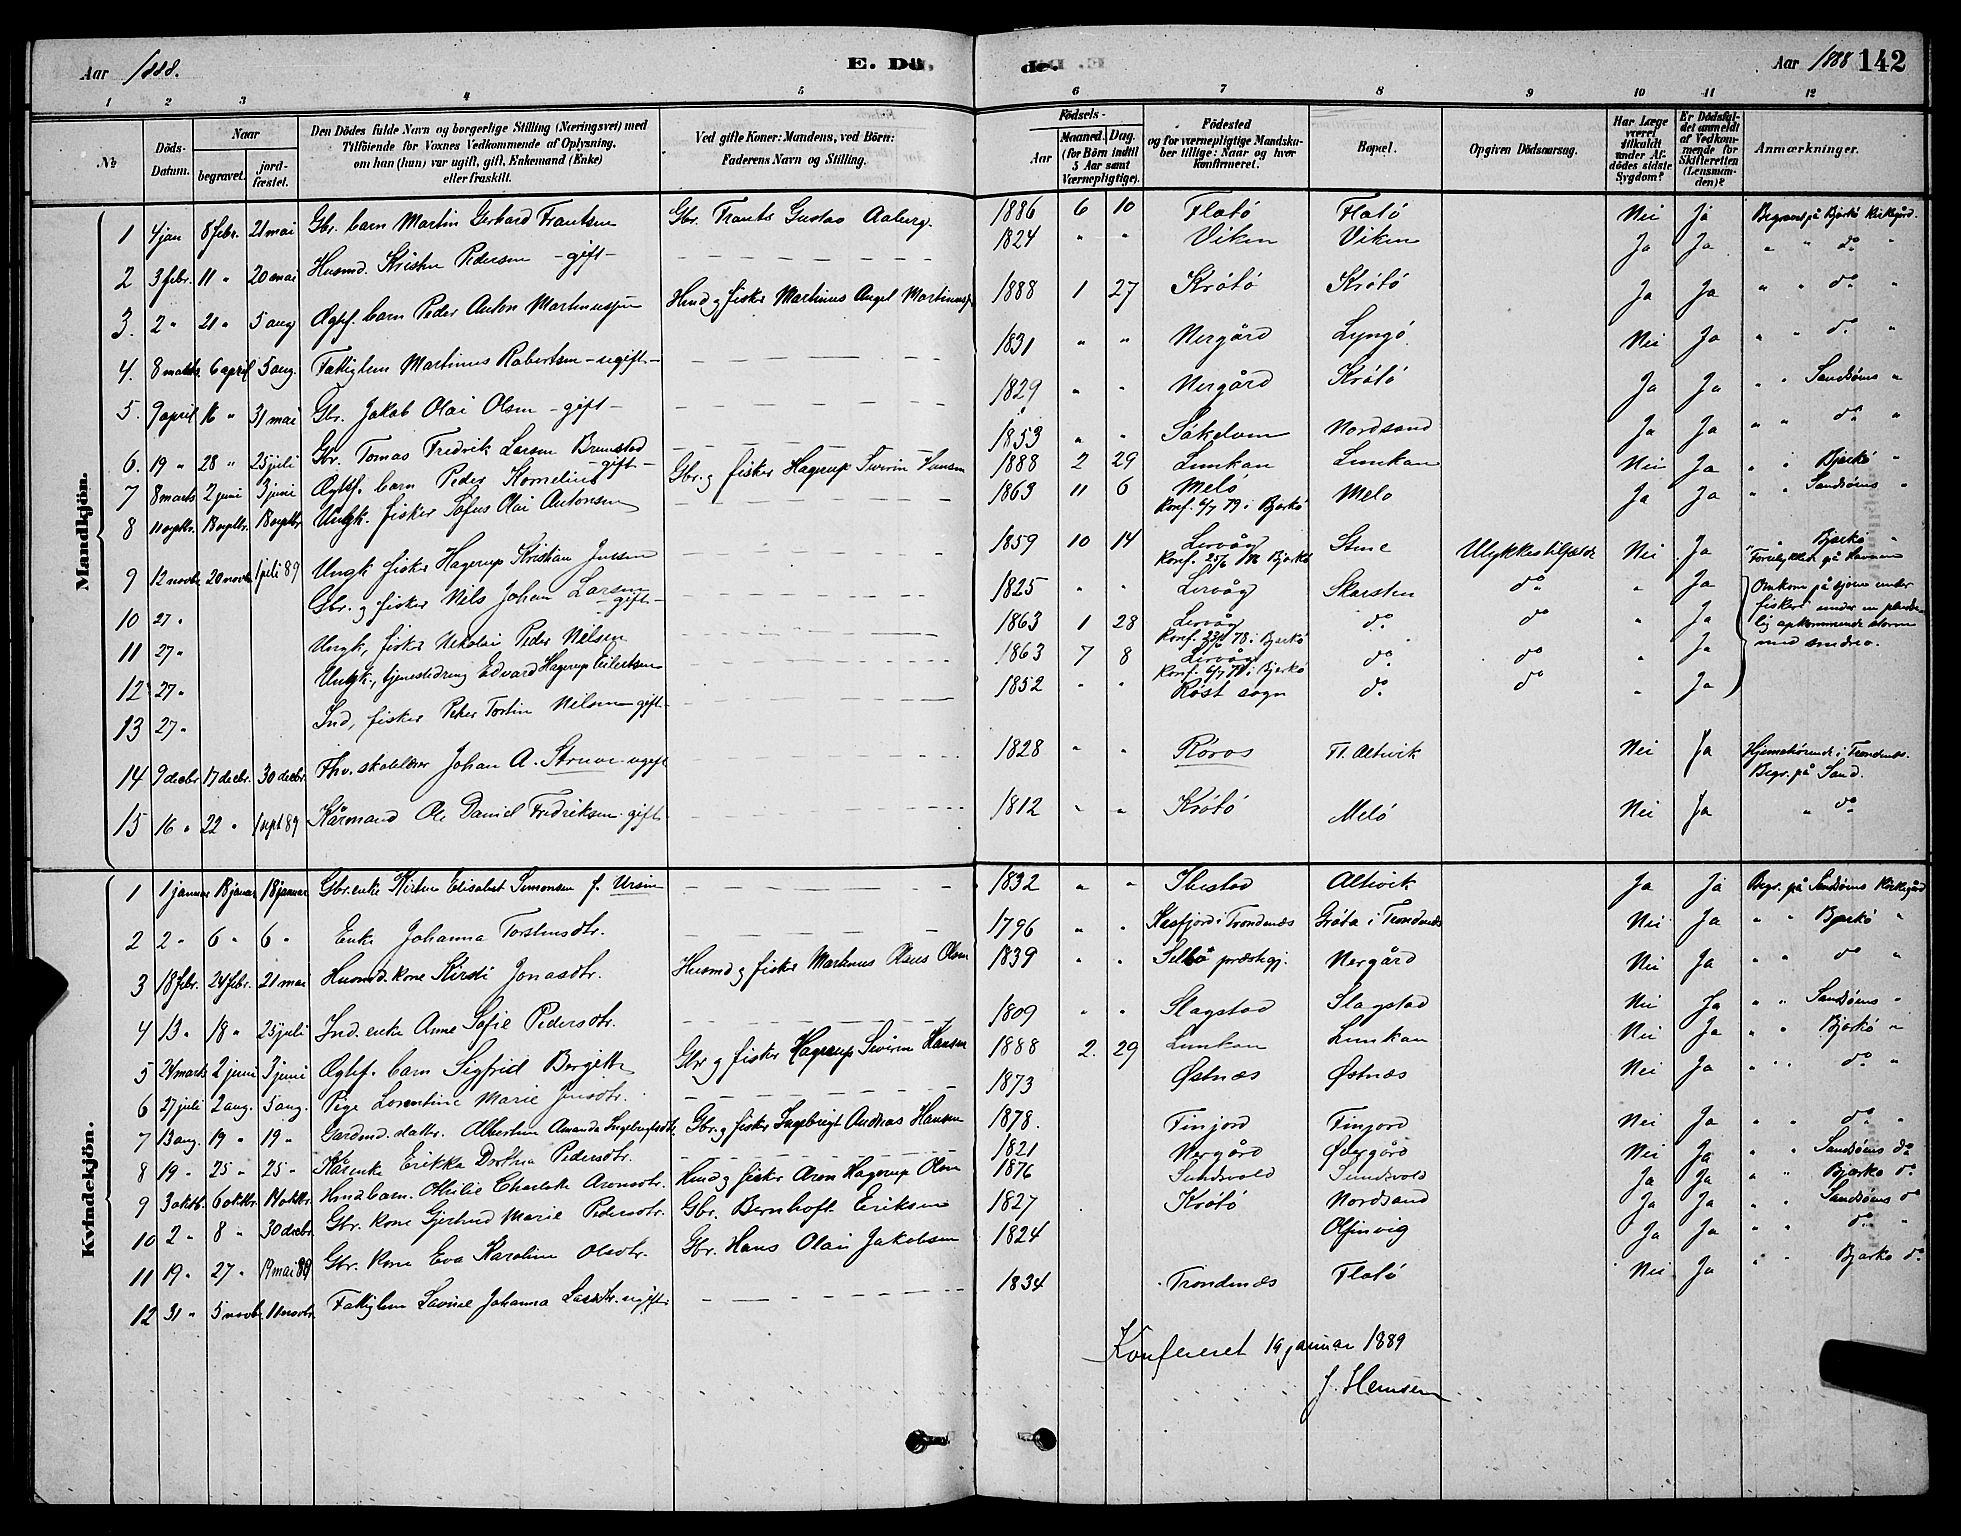 Aar 1888. E. Dö de. Aar 1888 142
1 2 3 4 5 6 7 8 9 10 11 12
No
Döds-Datum.
Naar
begravet. jordfæstet.
Den Dödes fulde Navn og borgerlige Stilling (Næringsvei) med
Tilföiende for Voxnes Vedkommende af Oplysning,
om han (hun) var ugift, gift, Enkemand (Enke)
eller fraskilt.
Ved gifte Koner: Mandens, ved Börn:
Faderens Navn og Stilling.
Födsels-
Aar
Maaned. Dag.
(for Börn indtil
5 Aar samt
Værnepligtige).
Födested
og for værnepligtige Mandsku-
ber tillige: Naar og hvor
konfirmeret.
Bopæl.
Opgiven Dödsaarsag.
Har Læge
været
tilkaldt
under Af-
dödes sidste
Sygdom?
Er Dödsfal-
det anmeldt
af Vedkom-
mende for
Skifteretten
(Lensman-
den)?
Anmærkninger.
Mandkjön.
1 4 jan 8 febr. 21 mai Gbr. barn Martin Gerhard Frantsen Gbr. Frants Gustav Aaberg. 1886 6 10 Flatö Flatö Nei Ja Begravet på Bjarkö Kirkegård.
2 3 febr. 11 " 20 mai Husmd. Kristen Pedersen - gift - 1824 " " Viken Viken Ja Ja " " do "
3. 2 " 21 " 5 aug Ægtef. barn Peder Anton Martinussen Hmd og fisker Martinus Angel Martinussen 1888 1 27 Krötö Krötö Ja Ja " " do "
4. 8 marts 6 april 5 aug. Fattiglem Martinus Robertsen - ugift - 1831 " " Nergård Lyngö. Nei Ja " " do "
5. 9 april 16 " 31 mai Gbr. Jakob Olai Olsen - gift - 1829 " " Nergård Krötö Ja Ja " " Sandsöens "
6. 19 " 28 " 25 juli Gbr. Tomas Fredrik Larsen Brunstad - gift - 1853 " " Nordsand Ja Ja " " do "
7 8 marts 2 juni 3 juni Ægtef. barn Peder Kornelius Gbr. og fisker Hagerup Severin Hansen 1888 2 29 Lunkan Lunkan Nei Ja " " Bjarkö "
8 11 septbr. 18 septbr. 18 septbr. Ungk. fisker Sofus Olai Antonsen 1863 11 6 Melö Konf. 6/7 79 i Bjarkö Melö Ja Ja " " Sandsöens "
9 12 novbr. 20 novbr. 1 juli 89 Ungk fisker Hagerup Kristian Jensen 1859 10 14 Lervåg Stene Ulykkestilfælde Nei Ja " Bjarkö " Forulykket på Havnen
10 27 " Gbr. og fisker Nils Johan Larsen - gift - 1825 " " Lervåg Skarsten do " Ja Omkom på sjöen under
11 27 " Ungk, fisker Nikolai Peder Nilsen 1863 1 28 Lervåg Konf. 23/6 78 i Bjarkö do do " Ja fiskeri under en pludse-
12 27 " Ungk., tjenestedreng Edvard Hagerup Eilertsen 1863 7 8 Lervåg do do " Ja lig opkommende storm
13 27 " Ind, fisker Peter Tortin Nilsen gift - 1852 " " Röst sogn do. do " Ja med snedrev.
14 9 decbr 17 decbr. 30 decbr. Fhv. skolelærer Johan A. Struve ugift 1828 " " Röros Fl. Altevik Nei Ja Hjemmehörende i Trondenæs. Begr. på Sand.
15 16 " 22 " 1 sept 89 Kårmand Ole Daniel Fredriksen gift 1812 " " Krötö Melö Nei Ja " do
Kvindekjön.
1 1 januar 18 januar 18 januar Gbr. enke Kirsten Elisabet Simonsen f. Ursin 1832 " " Ibestad Altevik Ja Ja Begr. på Sandsöens Kirkegård
2 2 " 6 " 6 " Enke Johanna Torstensdtr. 1796 " " Kasfjord i Trondenæs Gröta i Trondenæs Nei Ja " " Bjarkö "
3 18 febr. 24 febr. 21 mai Husmd. kone Kirsti Jonasdtr. Husmd og fisker Martinus Olaus Olsen 1839 " " Selbö præstegj. Nergård Nei Ja " " do "
4 13 " 18 " 25 juli Ind. enke Anne Sofie Pedersdtr. 1809 " " Slagstad Slagstad Nei Ja " " Sandsöens "
5 24 marts 2 juni 3 juni Ægtef. barn Sigfrid Bergitte Gbr og fisker Hagerup Severin Hansen 1888 2. 29 Lunkan Lunkan Nei Ja " " Bjarkö "
6 27 juli 2 aug. 5 aug. Pige Lorentine Marie Jensdtr. 1873 Östnæs Östnæs Nei Ja " " do "
7 13 aug. 19 " 19 " Gardmd. datter. Albertine Amanda Ingebrigtsdtr. Gbr. og fisker Ingebrigt Andreas Hansen 1878. Finjord Finjord Nei Ja " " do "
8 19 " 25 " 25 " Kårenke Erikka Drothea Pedersdtr. 1821 Nergård Övergård Nei Ja " " Sandsöens do
9 3 oktb. 6 oktbr. 14 oktbr. Hmd barn. Othilie Charlotte Aronsdtr. Hmd og fisker Aron Hagerup Olsen 1876 Sundsvold Sundsvold Ja Ja " " Bjarkö do
10 2 " 8 " 30 decbr. Gbr. kone Gjertrud Marie Pedersdtr. Gbr. Bernhoft Eriksen 1827 Krötö Nordsand Ja Ja " " Sandsöens do
11 19 " 27 " 19 mai 89 Gbr. kone Eva Karoline Olsdtr. Gbr. Hans Olai Jakobsen 1824 Ja Ja " " do "
12 31 " 5 novbr. 11 novbr. Fattiglem Lavine Johanna Larsdtr. ugift 1834 Trondenæs Flatö Nei Ja " " Bjarkö do
Konfereret 19 januar 1889
J. Hemsen